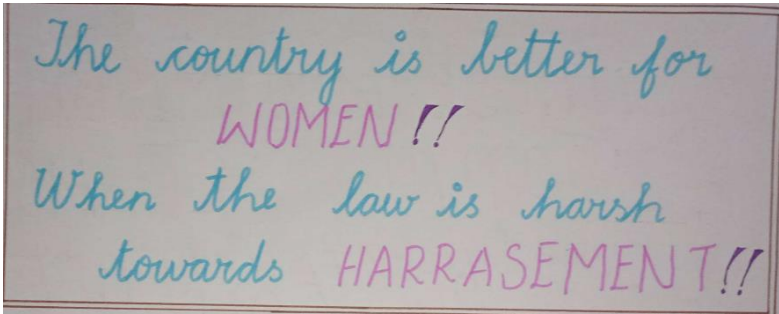 The country is better for
WOMEN!!
When the law is harsh
towards HARRASEMENT!!